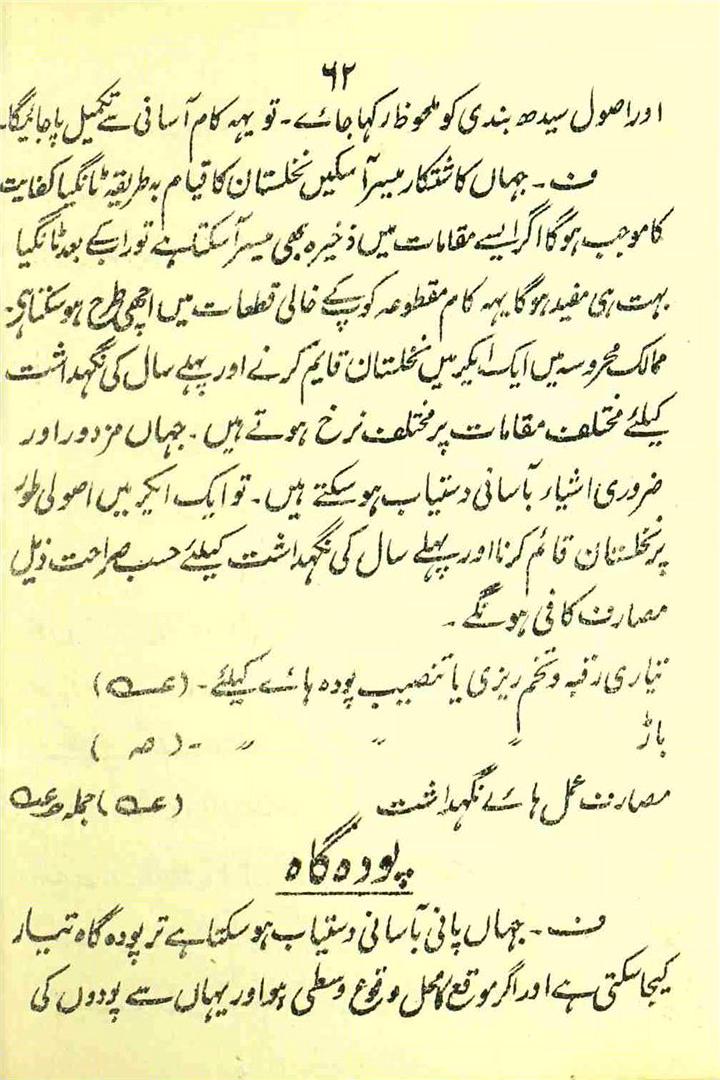 ۶۲
اور اصول سیدھ بندی کو ملحوظ رکہا جائے۔ تو یہہ کام آسانی سے تکمیل پا جائیگا۔
ف۔ جہاں کاشتکار میسر آسکیں نخلستان کا قیام بہ طریقہ ٹانگیا کفایت
کا موجب ہوگا اگر ایسے مقامات میں ذخیرہ بھی میسر آسکتا ہے تو راب کے بعد ٹانگیا
بہت ہی مفید ہوگا یہہ کام مقطوعہ کوپ کے خالی قطعات میں اچھی طرح ہو سکتا ہی۔
ممالک محروسہ میں ایک ایکر میں نخلستان قایم کرنے اور پہلے سال کی نگہداشت
کیلئے مختلف مقامات پر مختلف نرخ ہوتے ہیں۔ جہاں مزدور اور
ضروری اشیار بآسانی دستیاب ہو سکتے ہیں۔ تو ایک ایکر میں اصولی طور
پر نخلستان قائم کرنا اور پہلے سال کی نگہداشت کیلئے حسب صراحت ذیل
مصارف کافی ہونگے۔
تیاری رقبہ و تخم ریزی یا تنصیب پودہ ہائے کیلئے۔
باڑ 〃 〃 〃 ۔
مصارف عمل ہائے نگہداشت جملہ
پودہ گاہ
ف۔ جہاں پانی بآسانی دستیاب ہو سکتا ہے تر پودہ گاہ تیار
کیجا سکتی ہے اور اگر موقع کا محل وقوع وسطی ہو اور یہاں سے پودوں کی